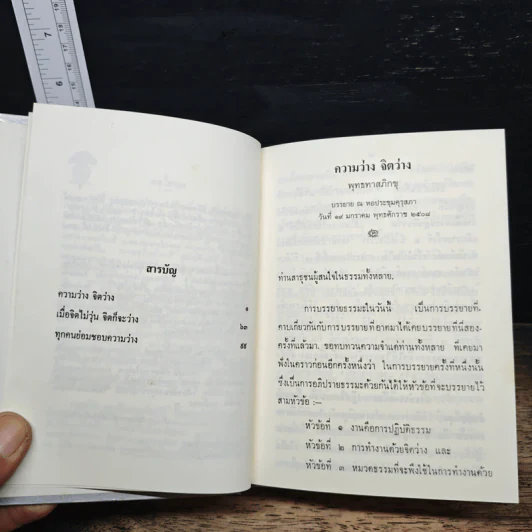 สารบัญ
ความว่าง จิตว่าง ๑
เมื่อจิตไม่วุ่น จิตก็จะว่าง ๖๓
ทุกคนย่อมชอบความว่าง ๙๙
ความว่าง จิตว่าง
พุทธทาสภิกขุ
บรรยาย ณ หอประชุมคุรุสภา
วันที่ ๑๙ มกราคม พุทธศักราช ๒๕๐๔
ท่านสาธุชนผู้สนใจในธรรมทั้งหลาย.
การบรรยายธรรมะในวันนี้ เป็นการบรรยายที่
คาบเกี่ยวกันกับการบรรยายที่อาตมาได้เคยบรรยายที่นี่สอง
ครั้งที่แล้วมา. ขอทบทวนความจำแด่ท่านทั้งหลาย ที่เคยมา
ฟังในคราวก่อนอีกครั้งหนึ่งว่า ในการบรรยายครั้งที่หนึ่งนั้น
ซึ่งเป็นการอภิปรายธรรมะด้วยกันได้ให้หัวข้อที่จะบรรยายไว้
สามหัวข้อ :—
หัวข้อที่ ๑ งานคือการปฏิบัติธรรม
หัวข้อที่ ๒ การทำงานด้วยจิตว่าง และ
หัวข้อที่ ๓ หมวดธรรมที่จะพึงใช้ในการทำงานด้วย
7
6